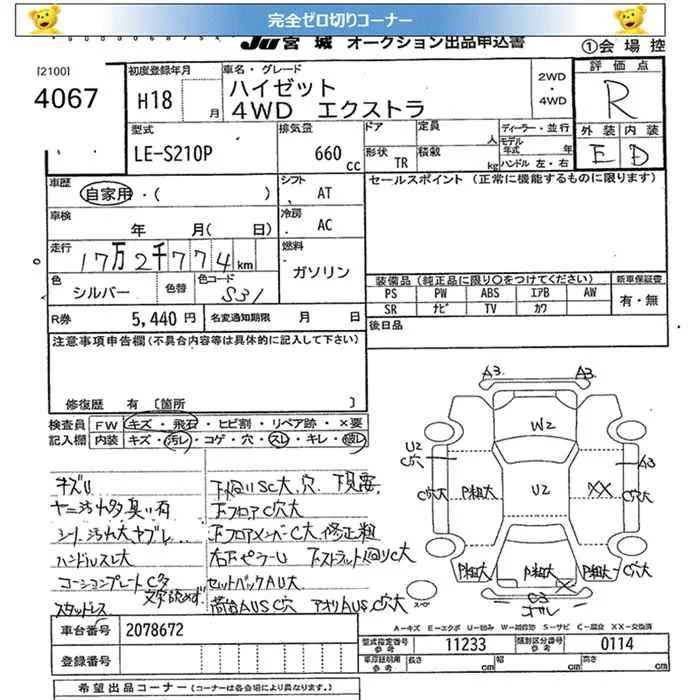 完全ゼロ切りコーナー
JU宮城 オークション出品申込書
①会場控
[2100]
4067
初度登録年月
H18
月
車名・グレード
ハイゼット
4WD エクストラ
2WD
・
4WD
評価点
R
外装 内装
E D
型式
LE-S210P
排気量
660 cc
ドア
定員
人
形状
TR
積載
kg
ディーラー・並行
モデル年式
年
ハンドル 左・右
車歴
自家用・( )
シフト
AT
セールスポイント(正常に機能するものに限ります)
車検
年 月( 日)
冷房
AC
走行
17万2千774km
燃料
ガソリン
色
シルバー
色替
色コード
S31
装備品(純正品に限り○をつけてください)
新車保証書
PS PW ABS エアB AW
SR ナビ TV カワ
有・無
R券
5,440円
名変通知期限
月 日
後日品
注意事項申告欄(不具合内容等は具体的に記入して下さい)
修復歴 有 [箇所 ]
検査員 FW キズ・飛石・ヒビ割・リペア跡・×要
記入欄 内装 キズ・汚レ・コゲ・穴・スレ・キレ・破レ
キズU
ヤニ汚れ多臭い有
シート汚れ大ヤブレ
ハンドルスレ大
コーションプレートC多
文字読めず
スタッドレス
下廻りSC大、穴、下見要
下フロアC穴大
下フロアメンバーC大修正粗
右下ピラーU 下ストラット廻りC大
セットバックAU大
荷台AUSC穴 アオリAUSC穴大
A3 A3
W2
U2
C穴
A3
C穴大
P粗大
U2
XX
C穴大
P粗大
P粗大
X
P粗大
C穴大
C3
スペア
A−キズ E−エクボ U−凹み W−補修跡 S−サビ C−腐食 XX−交換済
車台番号
2078672
型式指定番号
参考
11233
類別区分番号
参考
0114
登録番号
車庫証明用
参考
長さ
cm
幅
cm
高さ
cm
希望出品コーナー(コーナーは各会場により異なります。)